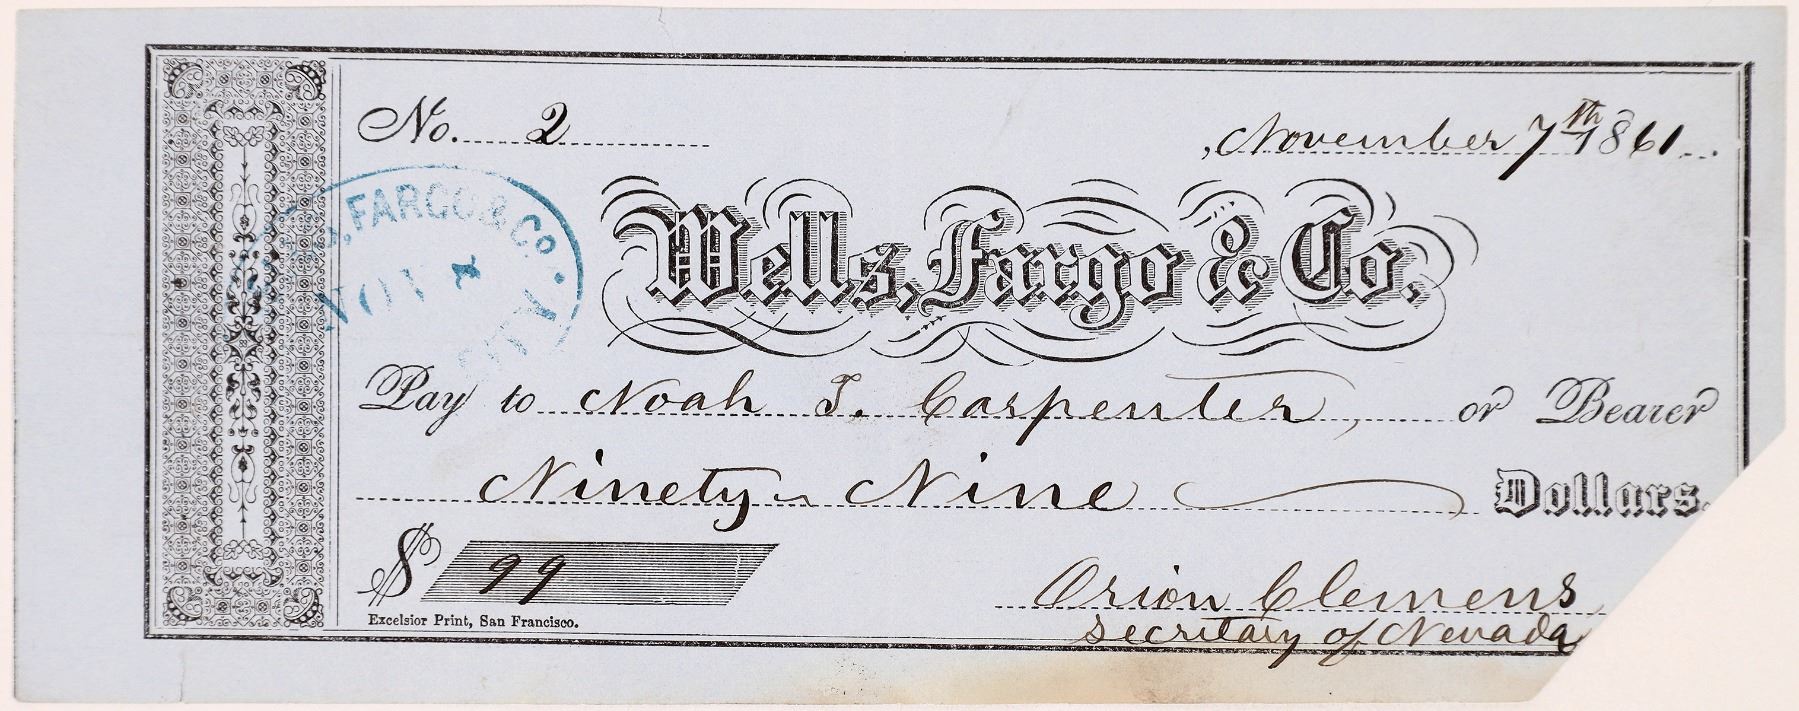 No. 2
November 7th 1861
FARGO & Co.
NOV 7
CITY
Wells, Fargo & Co.
Pay to Noah T. Carpenter, or Bearer
Ninety Nine Dollars.
$ 99
Excelsior Print, San Francisco.
Orion Clemens
Secretary of Nevada